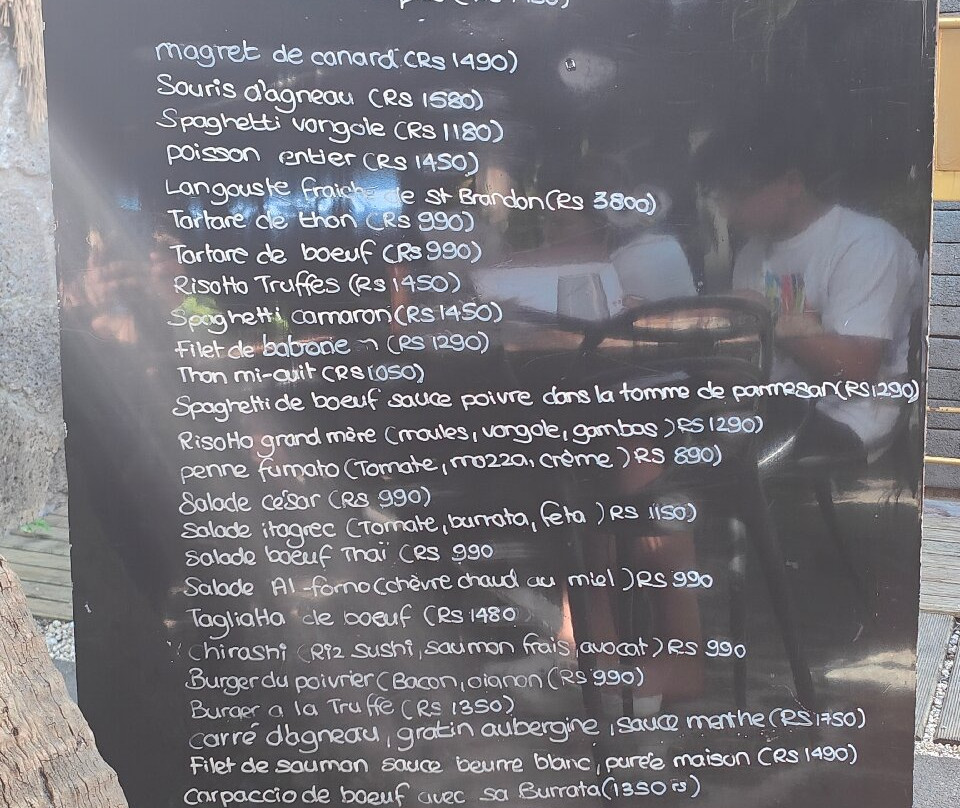 magret de canard (Rs 1490)
Souris d'agneau (Rs 1580)
Spaghetti vongole (Rs 1180)
poisson entier (Rs 1450)
Langouste fraiche de St Brandon (Rs 3800)
Tartare de thon (Rs 990)
Tartare de boeuf (Rs 990)
Risotto Truffes (Rs 1450)
Spaghetti camaron (Rs 1450)
Filet de (Rs 1290)
Thon mi-cuit (RS 1050)
Spaghetti de boeuf sauce poivre dans la tomme de parmesan (RS 1290)
Risotto grand mère (moules, vongole, gambas) RS 1290)
penne fumato (Tomate, mozza, crème) RS 890)
Salade césar (RS 990)
Salade itagrec (Tomate, burrata, feta) RS 1150)
Salade boeuf Thaï (RS 990
Salade Al-forno (chèvre chaud au miel) RS 990
Tagliatta de boeuf (Rs 1480
Chirashi (Riz sushi, saumon frais, avocat) Rs 990
Burger du poivrier (Bacon, oignon (Rs 990)
Burger a la Truffe (Rs 1350)
carré d'agneau, gratin aubergine, sauce menthe (RS 1750)
Filet de saumon sauce beurre blanc, purée maison (RS 1490)
carpaccio de boeuf avec sa Burrata (1350 rs)